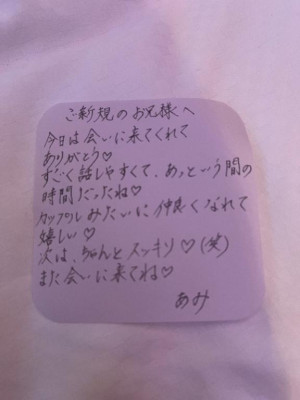 ご新規のお兄様へ
今日は会いに来てくれて
ありがとう♡
すごく話しやすくて、あっという間の
時間だったね♡
カップルみたいに仲良くなれて
嬉しい♡
次は、ちゃんとスッキリ♡(笑)
また会いに来てね♡
あみ